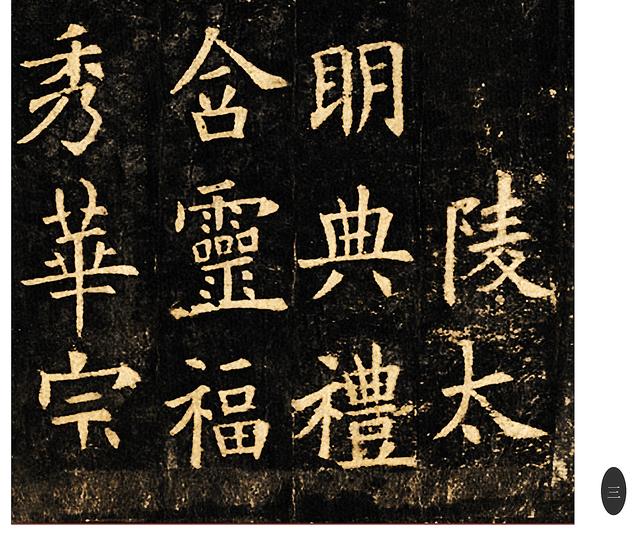 陵太
明典禮
含靈福
秀華宗